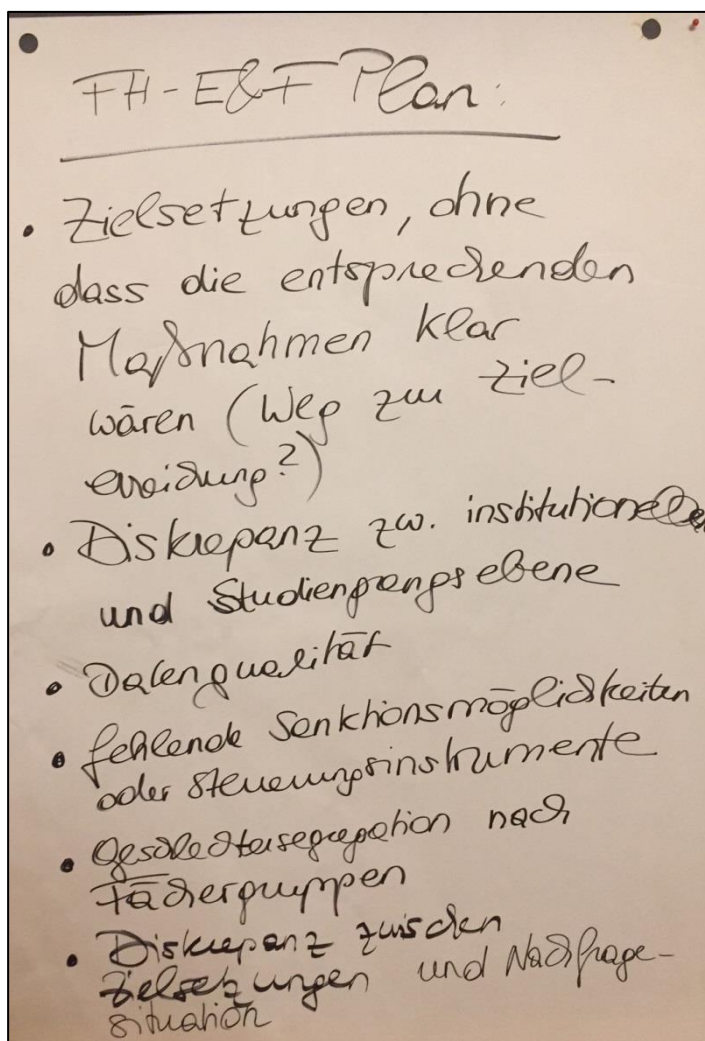 FH-E&F Plan:
• Zielsetzungen, ohne
dass die entsprechenden
Maßnahmen klar
wären (Weg zur Ziel-
erreichung?)
• Diskrepanz zw. institutioneller
und Studiengangsebene
• Datenqualität
• fehlende Sanktionsmöglichkeiten
oder Steuerungsinstrumente
• Geschlechtersegregation nach
Fächergruppen
• Diskrepanz zwischen
Zielsetzungen und Nachfrage-
situation